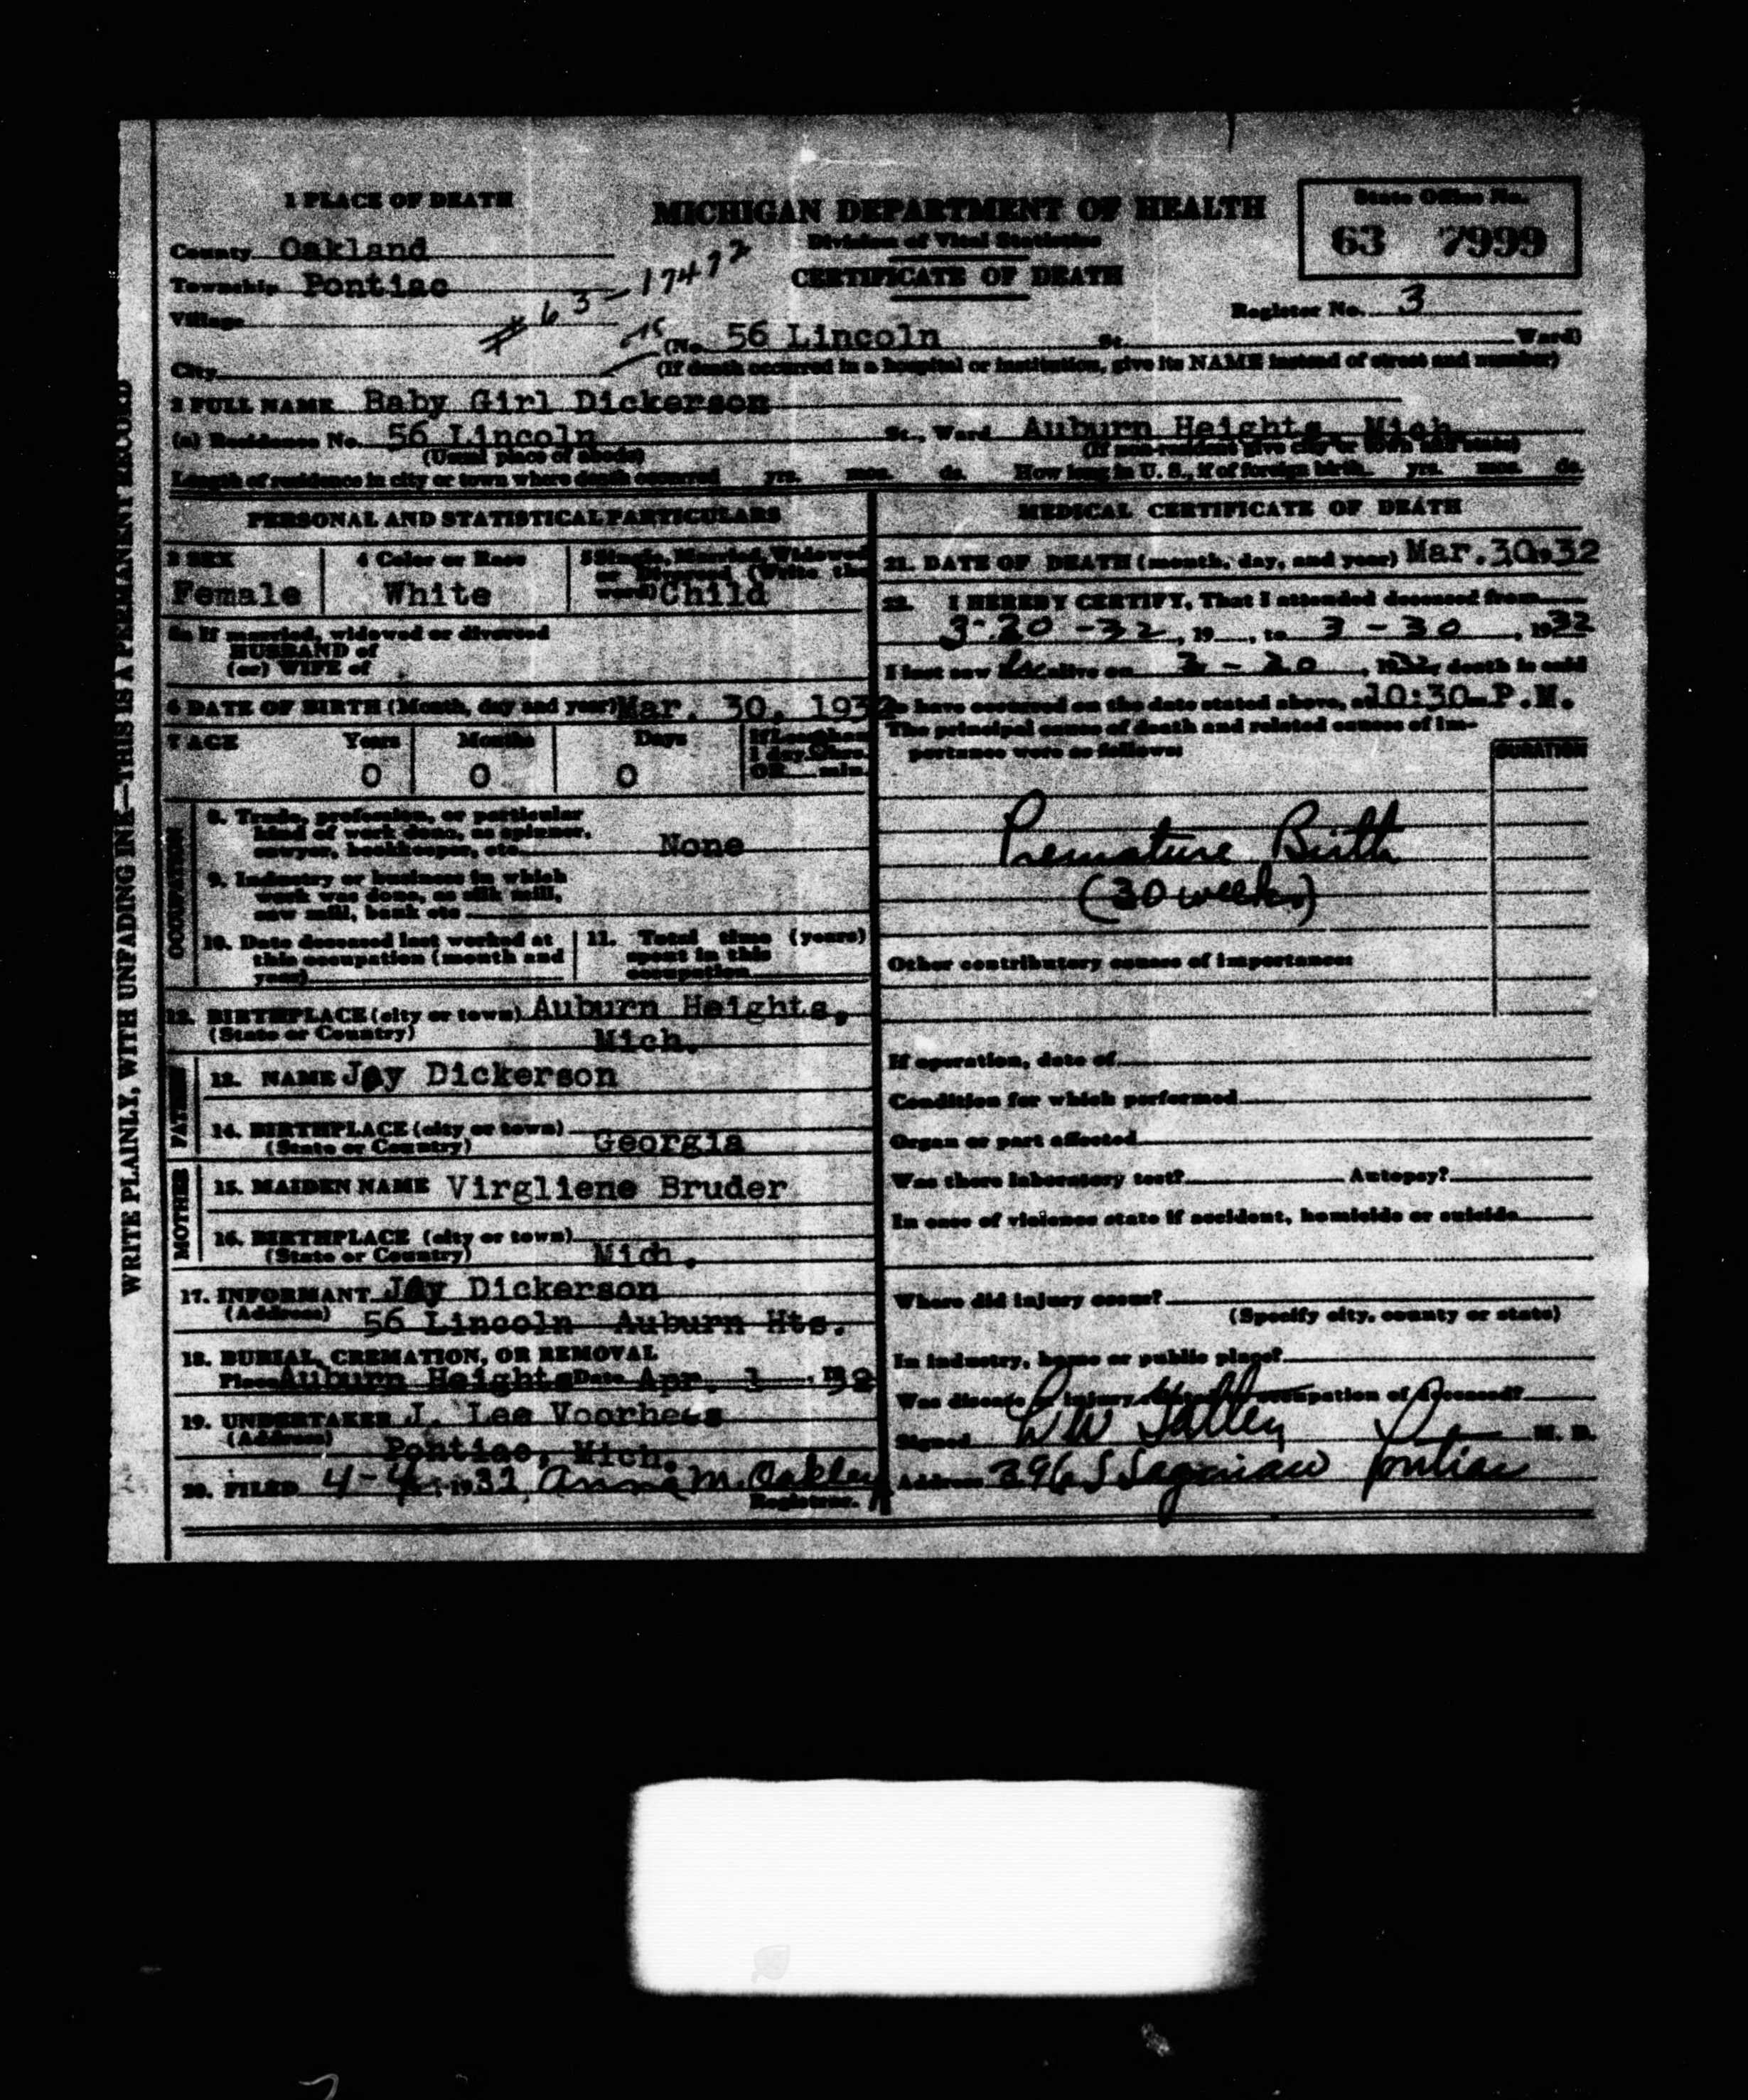 1 PLACE OF DEATH
MICHIGAN DEPARTMENT OF HEALTH
Division of Vital Statistics
CERTIFICATE OF DEATH
State Office No.
63 7999
County Oakland
Township Pontiac
Village
# 63-17472
Register No. 3
City
(No. 56 Lincoln St. Ward)
(If death occurred in a hospital or institution, give its NAME instead of street and number)
2 FULL NAME Baby Girl Dickerson
(a) Residence No. 56 Lincoln St., Ward Auburn Heights Mich
(Usual place of abode) (If non-resident give city or town and state)
Length of residence in city or town where death occurred yrs. mos. ds. How long in U. S., if of foreign birth. yrs. mos. ds.
WRITE PLAINLY, WITH UNFADING INK—THIS IS A PERMANENT RECORD
PERSONAL AND STATISTICAL PARTICULARS
3 SEX
Female
4 Color or Race
White
5 Single, Married, Widowed
or Divorced (Write the
word) Child
5a If married, widowed or divorced
HUSBAND of
(or) WIFE of
6 DATE OF BIRTH (Month, day and year) Mar. 30, 1932
7 AGE Years Months Days If Less than
1 day hrs.
OR min.
0 0 0
OCCUPATION
8. Trade, profession, or particular
kind of work done, as spinner,
sawyer, bookkeeper, etc. None
9. Industry or business in which
work was done, as silk mill,
saw mill, bank etc
10. Date deceased last worked at
this occupation (month and
year)
11. Total time (years)
spent in this
occupation
12. BIRTHPLACE (city or town) Auburn Heights,
(State or Country) Mich.
FATHER
13. NAME Jay Dickerson
14. BIRTHPLACE (city or town)
(State or Country) Georgia
MOTHER
15. MAIDEN NAME Virgliene Bruder
16. BIRTHPLACE (city or town)
(State or Country) Mich.
17. INFORMANT Jay Dickerson
(Address) 56 Lincoln Auburn Hts.
18. BURIAL, CREMATION, OR REMOVAL
Place Auburn Heights Date Apr. 1 1932
19. UNDERTAKER J. Lee Voorhees
(Address) Pontiac, Mich.
20. FILED 4-4, 1932 Anna M. Oakley
Registrar.
MEDICAL CERTIFICATE OF DEATH
21. DATE OF DEATH (month, day, and year) Mar. 30, 1932
22. I HEREBY CERTIFY, That I attended deceased from
3-30-32, 19 , to 3-30, 1932
I last saw her alive on 3-30, 1932, death is said
to have occurred on the date stated above, at 10:30 P.M.
The principal cause of death and related causes of im-
portance were as follows:
DURATION
Premature Birth
(30 weeks)
Other contributory causes of importance:
If operation, date of
Condition for which performed
Organ or part affected
Was there laboratory test? Autopsy?
In case of violence state if accident, homicide or suicide
Where did injury occur?
(Specify city, county or state)
In industry, home or public place?
Was disease or injury occupation of deceased?
Signed M. D.
Address 396 S Saginaw Pontiac